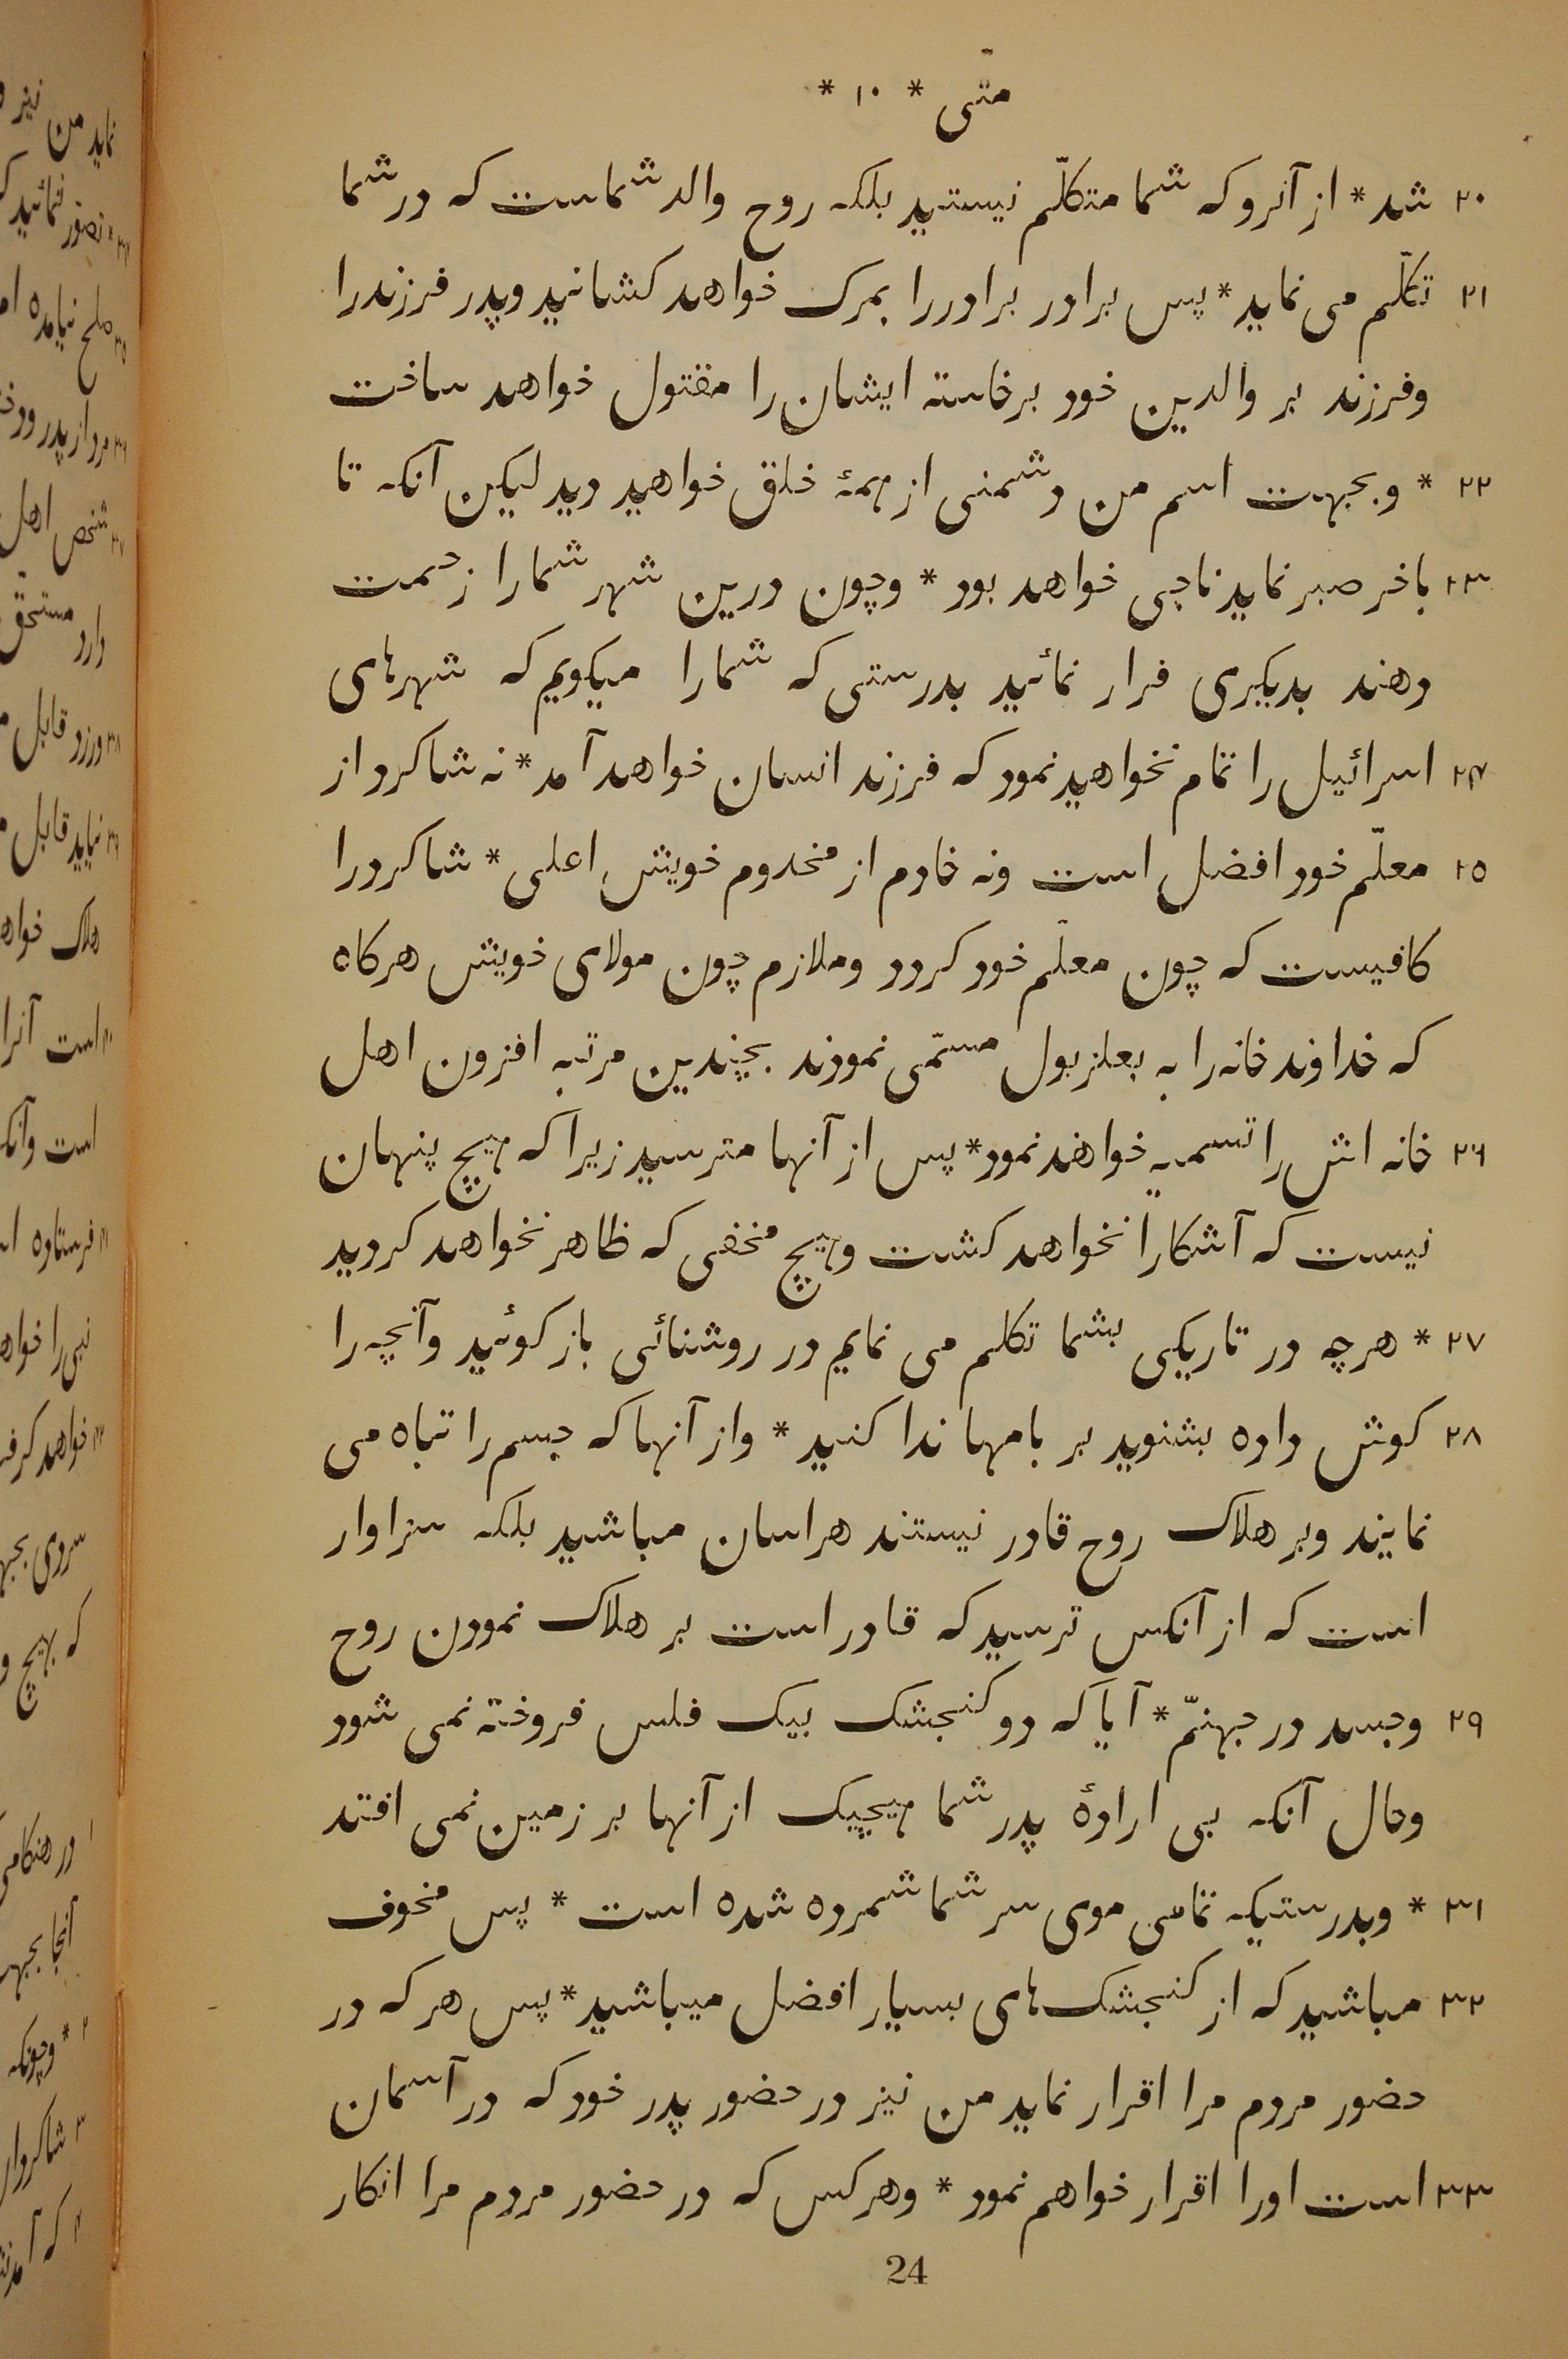 متّی * ۱۰ *
۲۰ شد * از آنرو که شما متکلّم نیستید بلکه روح والد شماست که در شما
۲۱ تکلّم می نماید * پس برادر برادررا بمرک خواهد کشانید وپدر فرزندرا
وفرزند بر والدین خود برخاسته ایشان را مقتول خواهد ساخت
۲۲ * وبجهت اسم من دشمنی از همهٔ خلق خواهید دید لیکن آنکه تا
۲۳ باخر صبر نماید ناجی خواهد بود * وچون درین شهر شمارا زحمت
دهند بدیکری فرار نمائید بدرستی که شمارا میکویم که شهرهای
۲۴ اسرائیل را تمام نخواهید نمود که فرزند انسان خواهد آمد * نه شاکرد از
۲۵ معلّم خود افضل است ونه خادم از مخدوم خویش اعلی * شاکردرا
کافیست که چون معلّم خود کردد وملازم چون مولای خویش هرکاه
که خداوند خانه را به بعلزبول مسمّی نمودند بچندین مرتبه افزون اهل
۲۶ خانه اش را تسمیه خواهند نمود * پس از آنها مترسید زیرا که هیچ پنهان
نیست که آشکارا نخواهد کشت وهیچ مخفی که ظاهر نخواهد کردید
۲۷ * هرچه در تاریکی بشما تکلم می نمایم در روشنائی باز کوئید وآنچه را
۲۸ کوش داده بشنوید بر بامها ندا کنید * واز آنها که جسم را تباه می
نمایند وبر هلاک روح قادر نیستند هراسان مباشید بلکه سزاوار
است که از آنکس ترسید که قادر است بر هلاک نمودن روح
۲۹ وجسد در جهنّم * آیا که دو کنجشک بیک فلس فروخته نمی شود
وحال آنکه بی ارادهٔ پدر شما هیچیک از آنها بر زمین نمی افتد
۳۱ * وبدرستیکه تمامی موی سر شما شمرده شده است * پس مخوف
۳۲ مباشید که از کنجشک‌های بسیار افضل میباشید * پس هر که در
حضور مردم مرا اقرار نماید من نیز در حضور پدر خود که در آسمان
۳۳ است اورا اقرار خواهم نمود * وهر کس که در حضور مردم مرا انکار
24